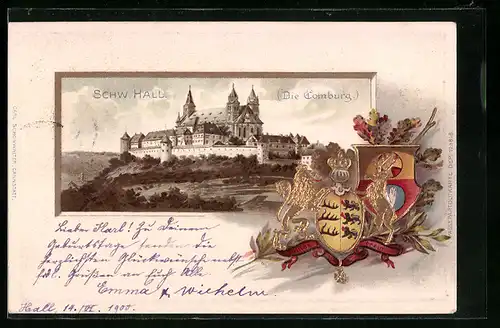 SCHW. HALL
(Die Comburg.)
Lieber Karl! Zu Deinem
Geburtstage senden die
herzlichsten Glückwünsche nebst
frdl. Grüßen an Euch Alle
Emma & Wilhelm.
Hall, 19. VI. 1900.